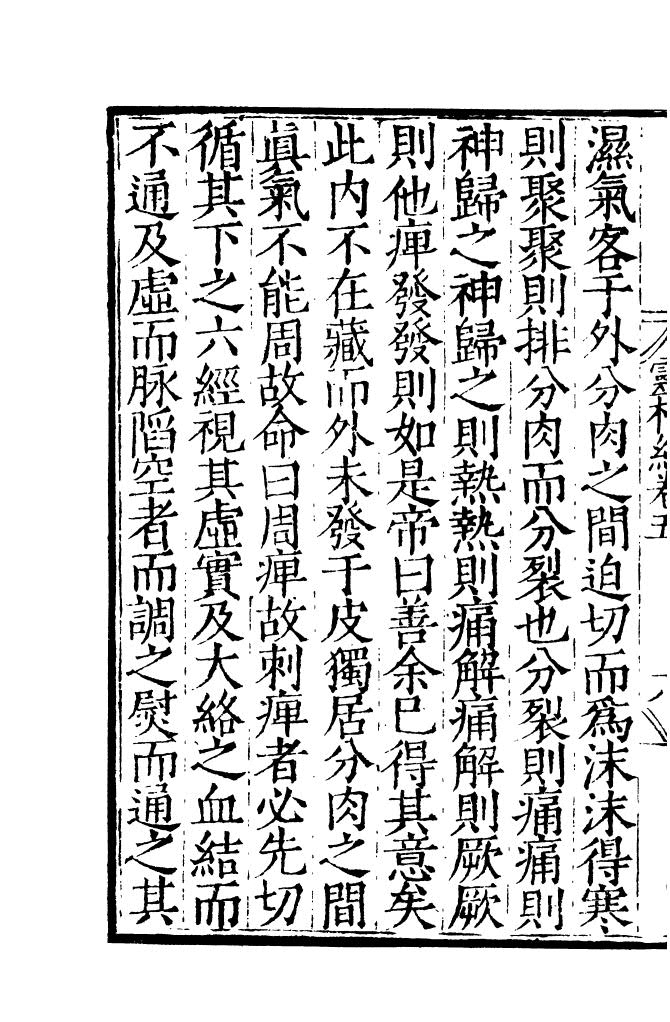 濕氣客于外分肉之間迫切而爲沫沫得寒
則聚聚則排分肉而分裂也分裂則痛痛則
神歸之神歸之則熱熱則痛解痛解則厥厥
則他痺發發則如是帝曰善余已得其意矣
此内不在藏而外未發于皮獨居分肉之間
眞氣不能周故命曰周痺故刺痺者必先切
循其下之六經視其虛實及大絡之血結而
不通及虛而脉陷空者而調之熨而通之其
靈樞經卷五